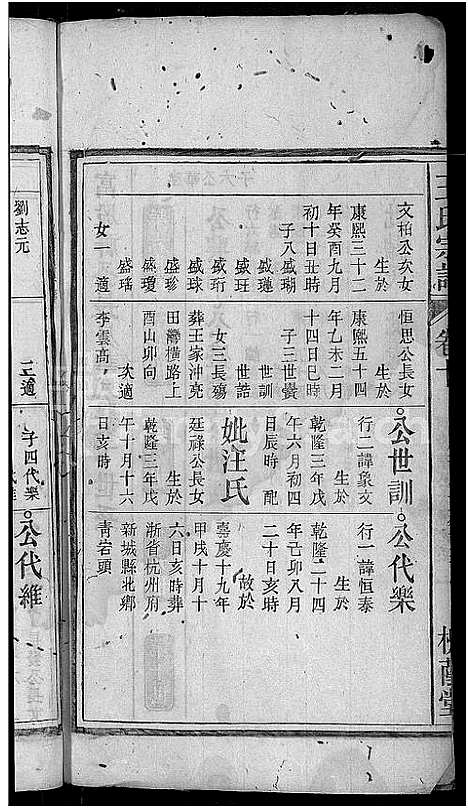 王氏宗譜
卷十
槐蔭堂
文柏公次女
生於
康熙三十二
年癸酉九月
初十日丑時
子八盛瑚
盛璉
盛玨
盛球
盛珩
盛珍
盛瓊
盛瑤
女一 適
恒思公長女
生於
康熙五十四
年乙未二月
十四日巳時
子三世黌
世訓
世誥
女三長殤
葬王家沖亮
田灣橫路上
酉山卯向
次適
李雲高
公世訓
行二諱象文
生於
乾隆三年戊
午六月初四
日辰時 配
妣汪氏
廷祿公長女
生於
乾隆三年戊
午十月十六
日亥時
公代樂
行一諱恒泰
生於
乾隆二十四
年己卯八月
二十日亥時
故於
嘉慶十九年
甲戌十月十
六日亥時葬
浙省杭州府
新城縣北鄉
青岩頭
劉志元
三適
子四代樂
代維
公代維